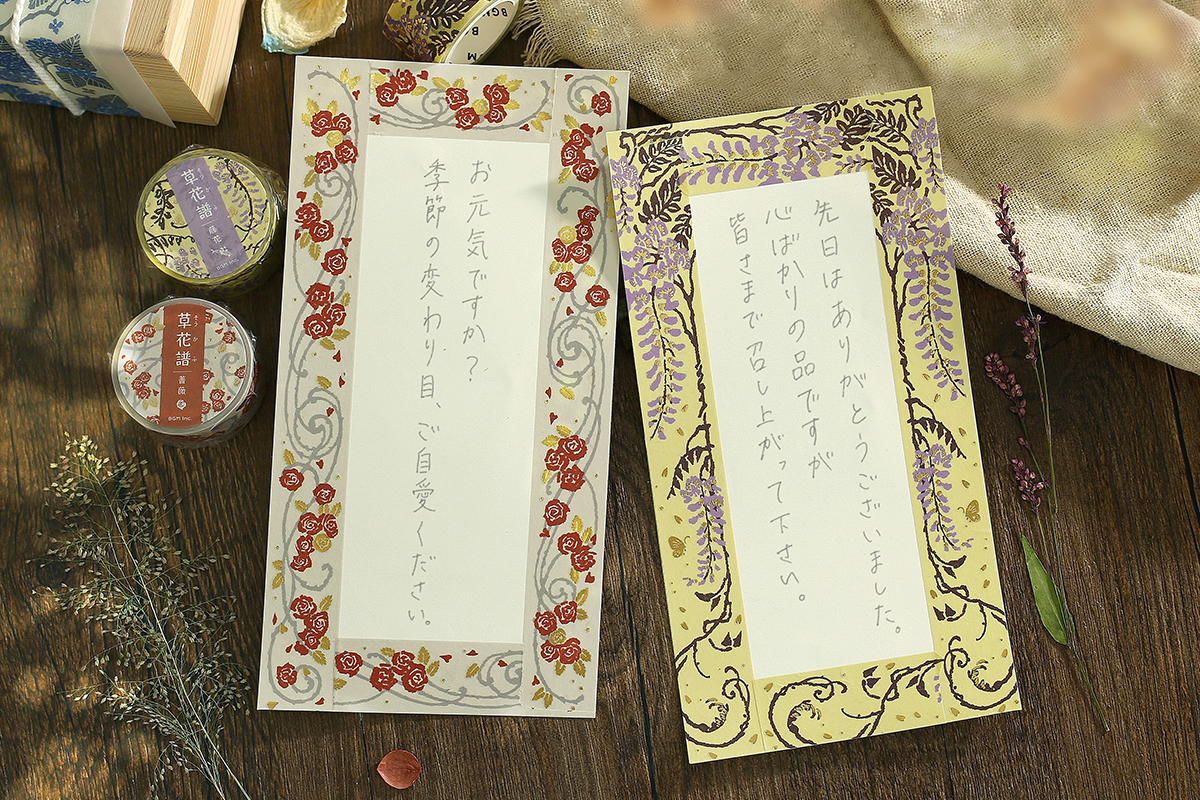 お元気ですか？
季節の変わり目、ご自愛ください。
先日はありがとうございました。
心ばかりの品ですが
皆さまで召し上がって下さい。
草花譜
そうかふ
藤花
BGM Inc.
草花譜
そうかふ
薔薇
BGM Inc.
BGM